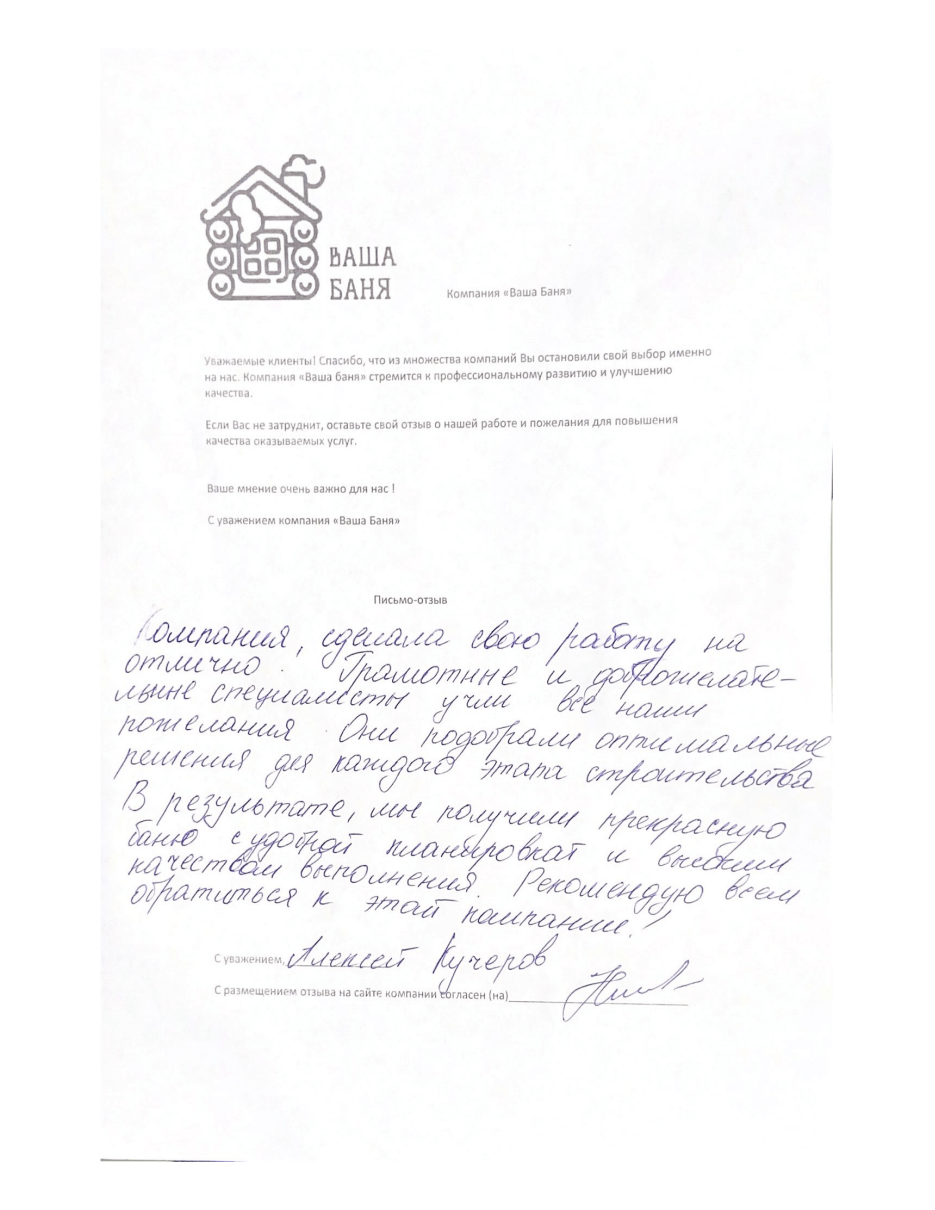 ВАША
БАНЯ
Компания «Ваша Баня»
Уважаемые клиенты! Спасибо, что из множества компаний Вы остановили свой выбор именно
на нас. Компания «Ваша баня» стремится к профессиональному развитию и улучшению
качества.
Если Вас не затруднит, оставьте свой отзыв о нашей работе и пожелания для повышения
качества оказываемых услуг.
Ваше мнение очень важно для нас !
С уважением компания «Ваша Баня»
Письмо-отзыв
Компания, сделала свою работу на
отлично. Грамотные и доброжелате-
льные специалисты учли все наши
пожелания. Они подобрали оптимальные
решения для каждого этапа строительства
В результате, мы получили прекрасную
баню с удобной планировкай и высоким
качеством выполнения. Рекомендую всем
обратиться к этой компании!
С уважением, Алексей Кучеров
С размещением отзыва на сайте компании согласен (на)